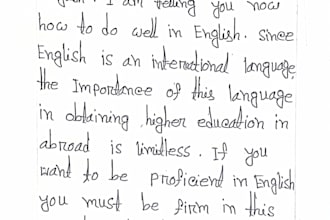 I am telling you now
how to do well in English. Since
English is an international language
the Importance of this language
in obtaining higher education in
abroad is limitless. If you
want to be proficient in English
you must be firm in this